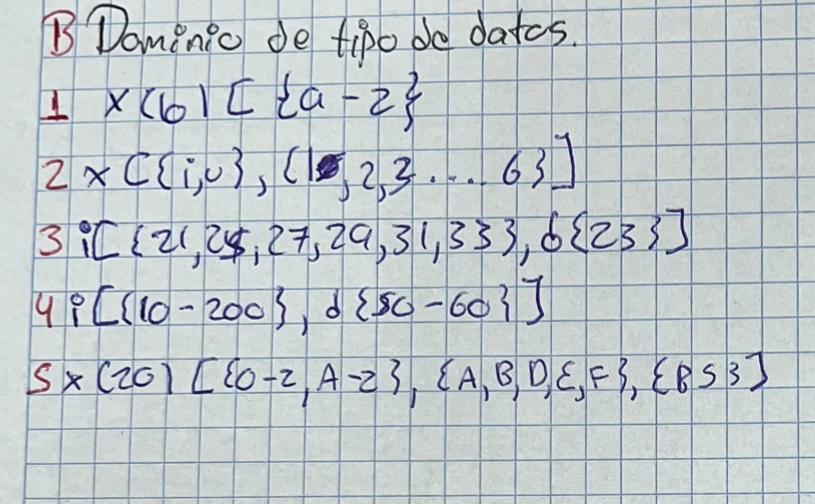 B Dominio de tipo de datos.
1 x(6) [ {a-z}
2 x [{i,u}, {1, 2, 3 .... 6}]
3 i[{21, 25, 27, 29, 31, 33}, d{23}]
4 i[{10-200}, d{50-60}]
5 x(20) [{0-z, A-z}, {A, B, D, E, F}, {B53}]